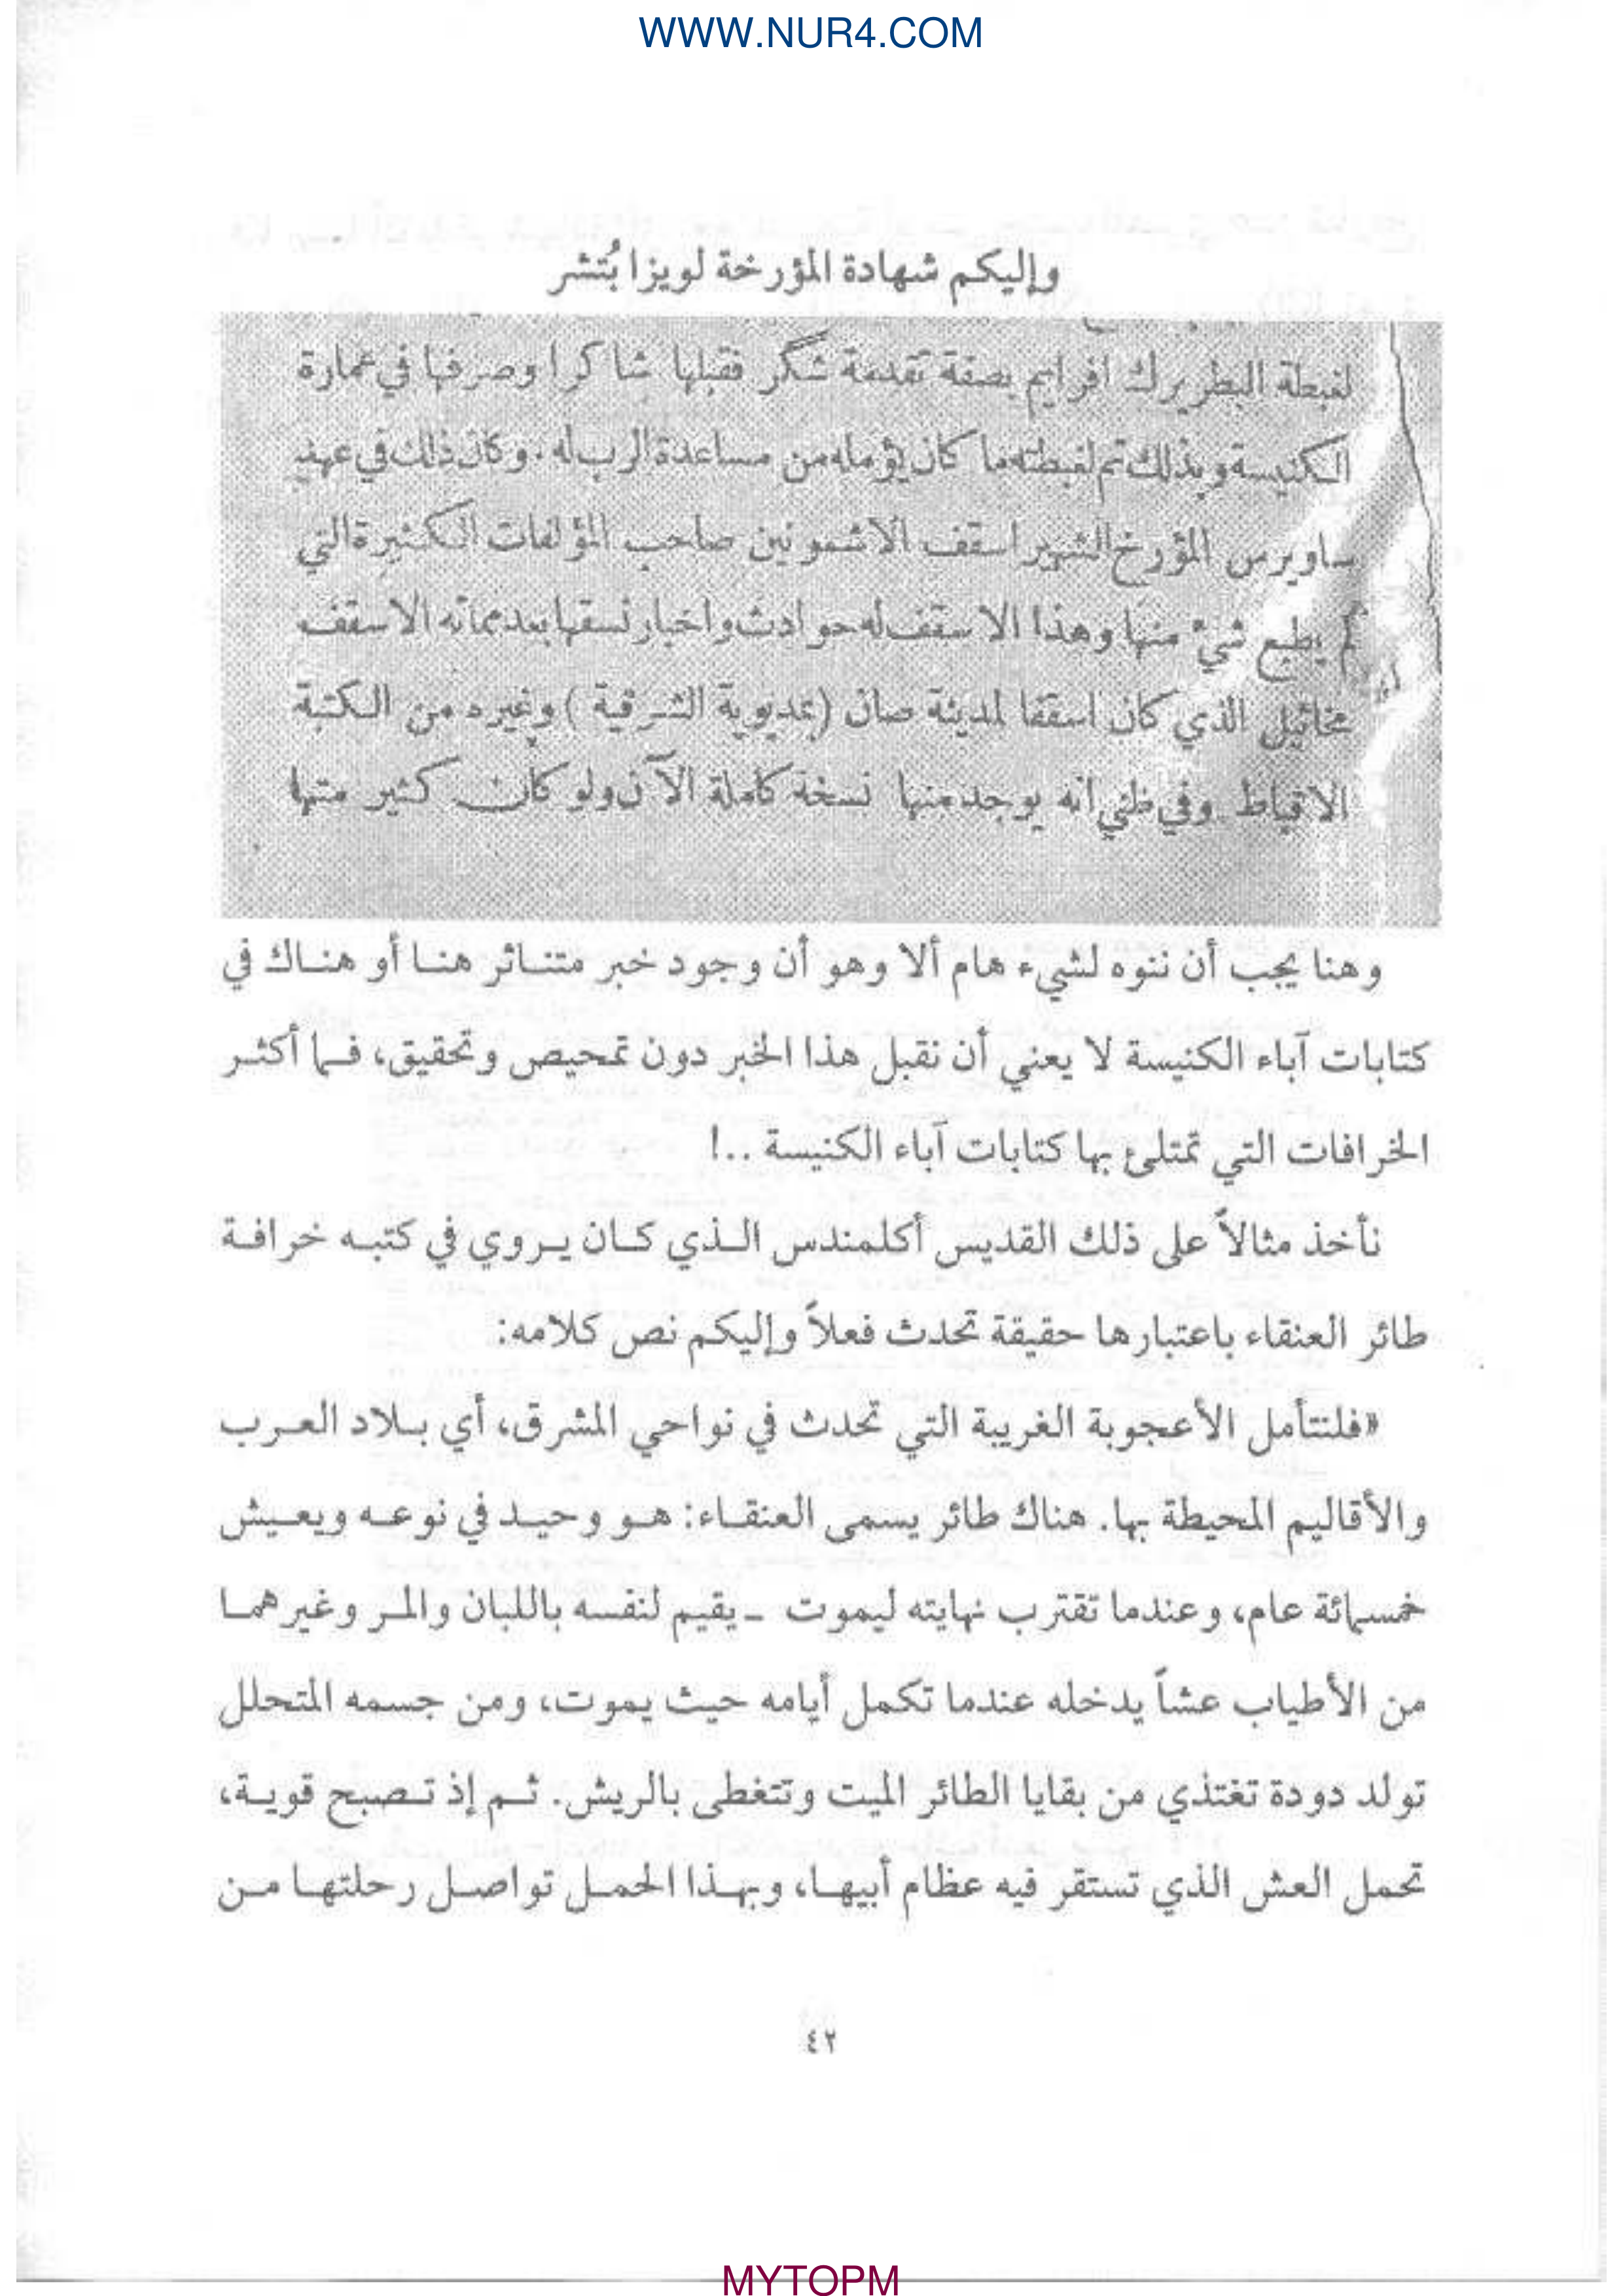 WWW.NUR4.COM
وإليكم شهادة المؤرخة لويزا بُتشر
لغبطة البطريرك افرايم بصفة تقدمة شكر فقبلها شاكرا وصرفها في عمارة
الكنيسة وبذلك تم لغبطته ما كان يؤمله من مساعدة الرب له . وكان ذلك في عهد
ساويرس المؤرخ الشهير اسقف الاشمونين صاحب المؤلفات الكثيرة التي
لم يطبع شيئ منها وهذا الاسقف له حوادث واخبار نسقها بعد مماته الاسقف
مخائيل الذي كان اسقفا لمدينة صان (بمديوية الشرقية) وغيره من الكتبة
الاقباط وفي ظني انه يوجد منها نسخة كاملة الآن ولو كان كثير منها
وهنا يجب أن ننوه لشيء هام ألا وهو أن وجود خبر متناثر هنا أو هناك في
كتابات آباء الكنيسة لا يعني أن نقبل هذا الخبر دون تمحيص وتحقيق، فما أكثر
الخرافات التي تمتلئ بها كتابات آباء الكنيسة ..!
نأخذ مثالاً على ذلك القديس أكلمندس الذي كان يروي في كتبه خرافة
طائر العنقاء باعتبارها حقيقة تحدث فعلاً وإليكم نص كلامه:
«فلنتأمل الأعجوبة الغريبة التي تحدث في نواحي المشرق، أي بلاد العرب
والأقاليم المحيطة بها. هناك طائر يسمى العنقاء: هو وحيد في نوعه ويعيش
خمسمائة عام، وعندما تقترب نهايته ليموت - يقيم لنفسه باللبان والمر وغيرهما
من الأطياب عشاً يدخله عندما تكمل أيامه حيث يموت، ومن جسمه المتحلل
تولد دودة تغتذي من بقايا الطائر الميت وتتغطى بالريش. ثم إذ تصبح قوية،
تحمل العش الذي تستقر فيه عظام أبيها، وبهذا الحمل تواصل رحلتها من
٤٢
MYTOPM